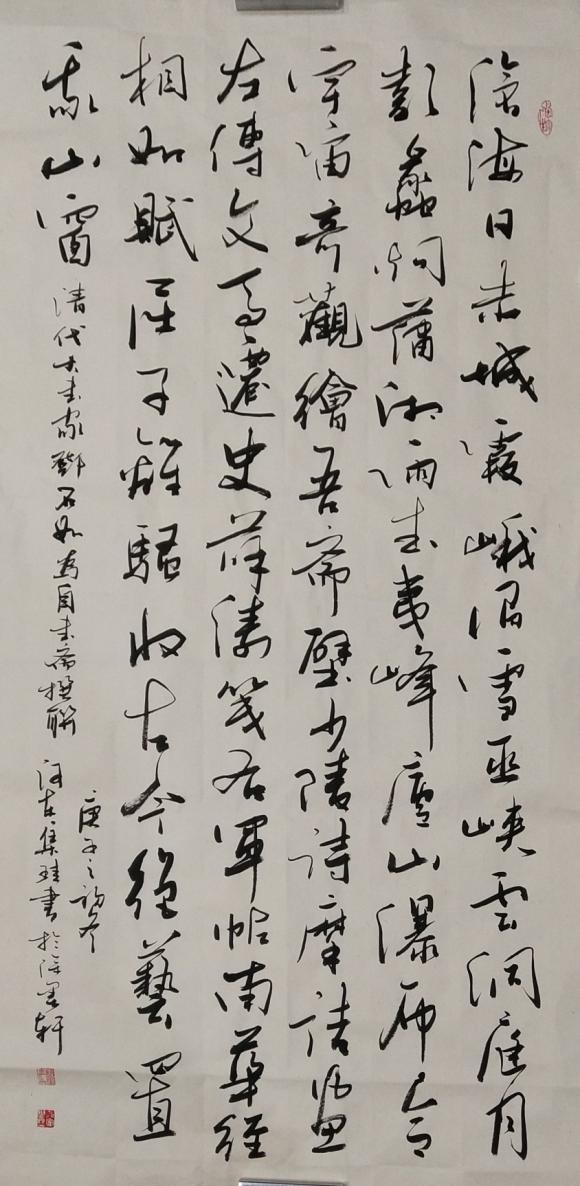 滄海日赤城霞峨眉雪巫峽雲洞庭月
彭蠡烟瀟湘雨武夷峰廬山瀑布合
宇宙奇觀繪吾齋壁少陵詩摩詰畫
左傳文馬遷史薛濤箋右軍帖南華經
相如賦屈子離騷收古今絕藝置
我山窗 清代大書家鄧石如為自書齋撰聯
庚子之初冬
集 書於 墨軒